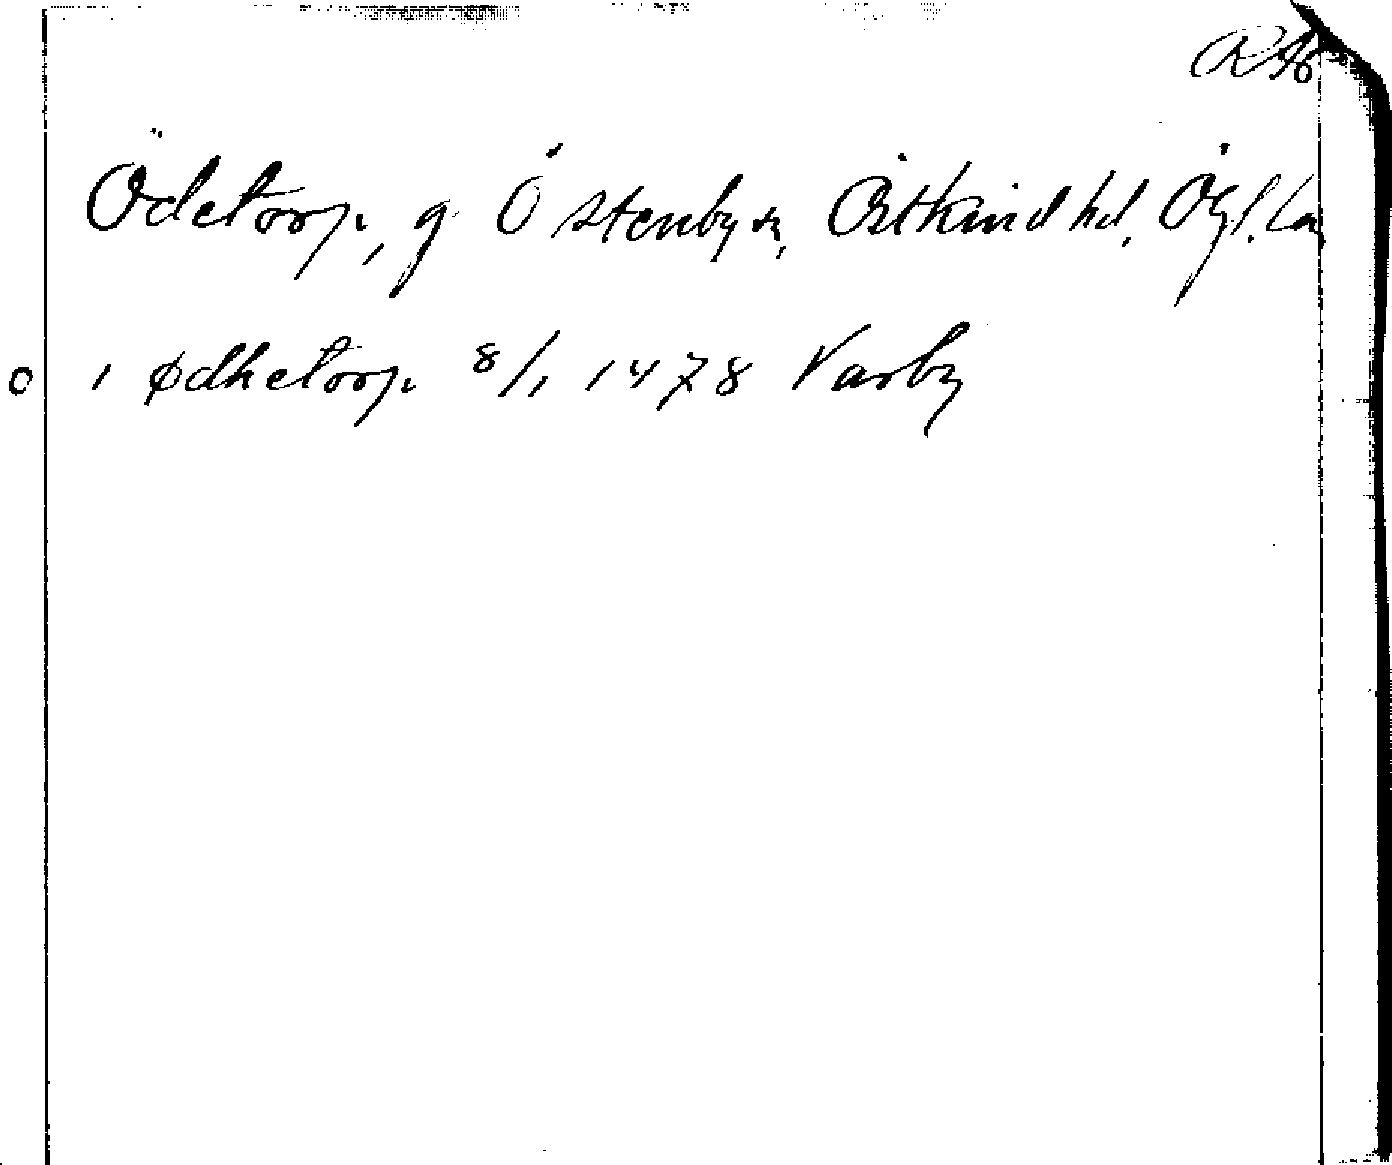 RAp
Ödetorp, g. Ö Stenby sn, Östkind hd. Ögl. Län
o 1 ødhetorp 8/1 1478 Vårby